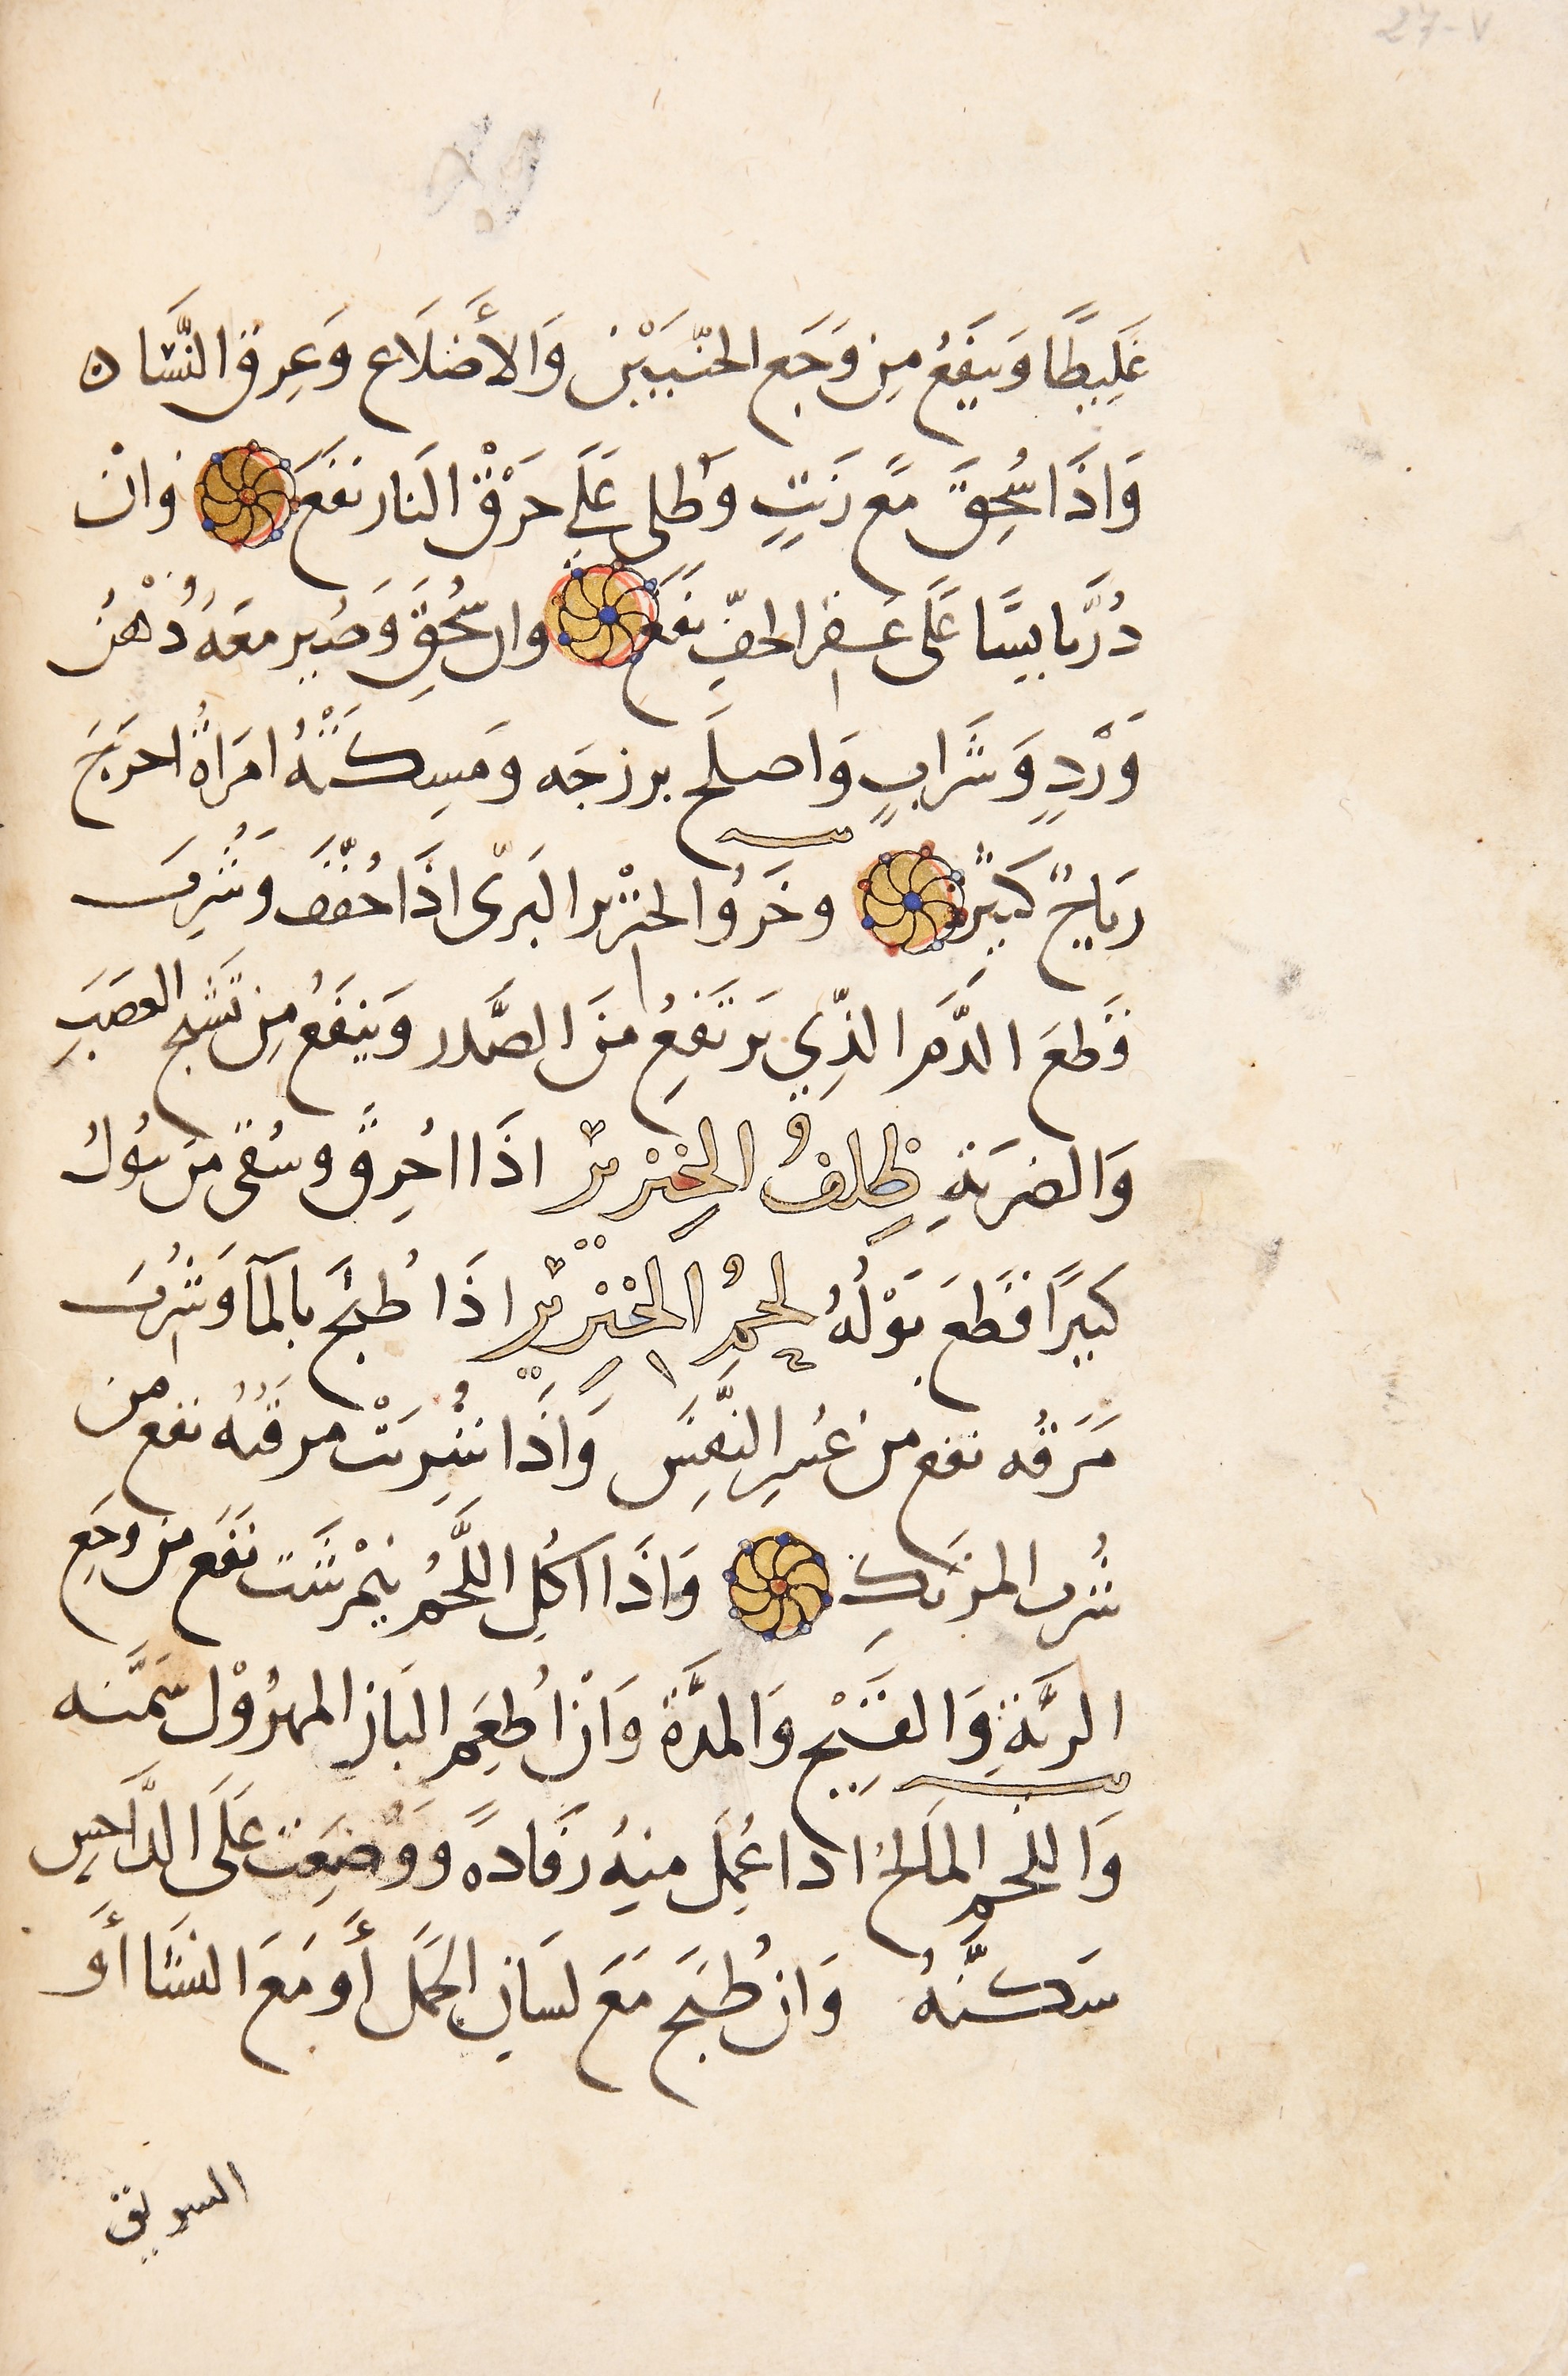 27-v
غَلِيظًا وَينفَعُ مِن وَجَع الجنبَيْن وَالأَضلَاع وَعِرق النَّسَا ه
وَاذَا سُحِقَ مَع زَيتٍ وَطلى عَلَى حَرْق النَار نفَعَ وَان
ذُرَّ يابسًا عَلَى عَقر الخفِّ نفَع وان سُحِقَ وَصُير معَهُ دُهْنُ
وَرْدٍ وَشَرابٍ وَاصلَح برزجَه ومَسِكَتْهُ امرَاةٌ اخرَجَ
ريَاحٌ كَثيرٌ وخَرُؤ الخنْزير البَرىّ اذَا جُفّفَ وَشُرِبَ
قَطعَ الدَّمَ الذِّي يَرتَفِعُ منَ الصَّدر وَينفَعُ مِن تَشَنج العَصَبِ
وَالضربَةِ ظِلفُ الخِنزيرْ اذَا احُرِقَ وسُقىَ مَن يبُولُ
كَثيرًا قَطعَ بَوْلهُ لحمُ الخِنزيرْ اذَا طُبخَ بالمَآ وَشُربَ
مَرَقُه نفع من عُسرِ النَّفَس وَاذَا شُرِبَتْ مرقَتُه نفع من
شُرب المرتكِ وَاذَا اكُلِ اللَّحمُ نيمْرشت نفَع من وجَعِ
الريَةِ وَالقَيْحِ وَالمدَّة وَانْ اُطعِمَ البَاز المهزُوْل سَمَّنه
وَاللحم المالحُ اذا عُمِل منهُ رفَادةً وَوُضِعَت عَلَى الدَّاحِس
سَكنَّهُ وَان طُبخَ مَعَ لسَانِ الحَمَل أَو مَعَ السَنَا أَو
السويق